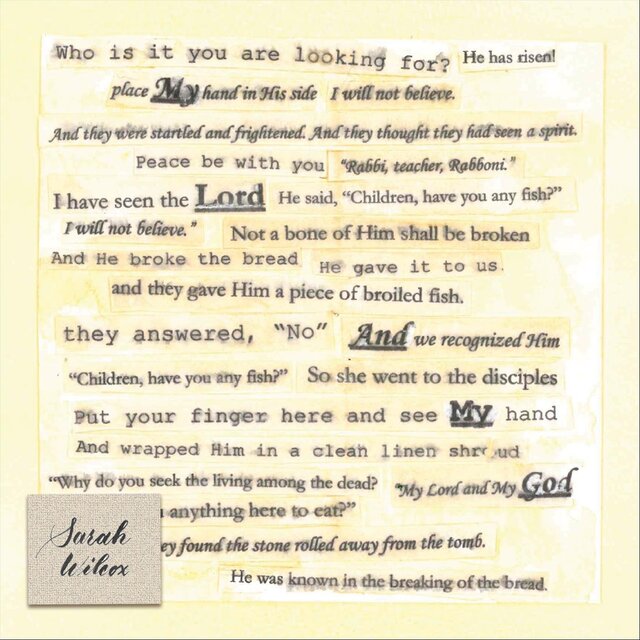 Who is it you are looking for? He has risen!
place My hand in His side I will not believe.
And they were startled and frightened. And they thought they had seen a spirit.
Peace be with you "Rabbi, teacher, Rabboni."
I have seen the Lord He said, "Children, have you any fish?"
I will not believe." Not a bone of Him shall be broken
And He broke the bread He gave it to us.
and they gave Him a piece of broiled fish.
they answered, "No" And we recognized Him
"Children, have you any fish?" So she went to the disciples
Put your finger here and see My hand
And wrapped Him in a clean linen shroud
"Why do you seek the living among the dead? "My Lord and My God
anything here to eat?"
ey found the stone rolled away from the tomb.
He was known in the breaking of the bread.
Sarah
Wilcox